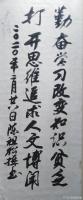 勤奮学习改变知识贫乏
打开思维追求人文博闻
二〇二〇年二月廿八日陈祖松撰书